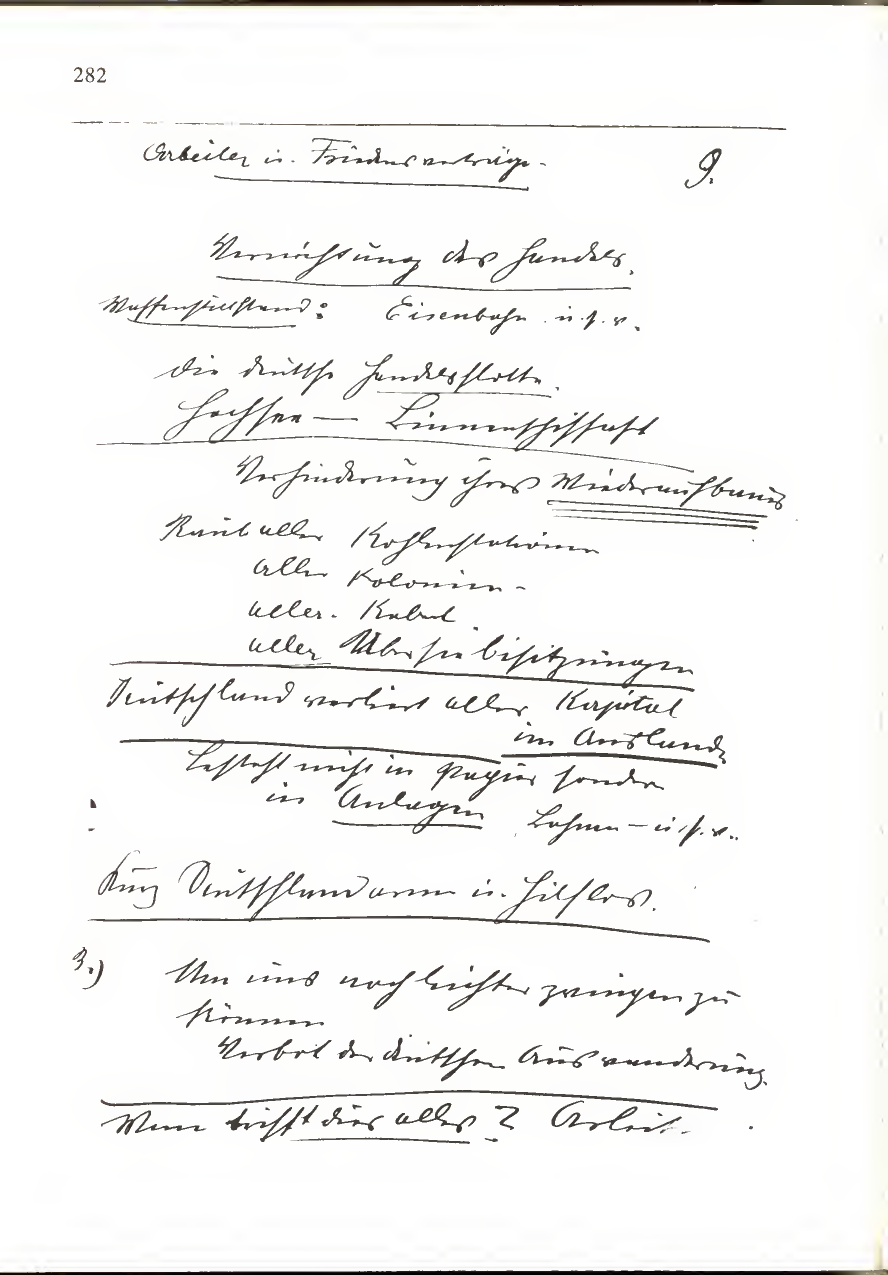 282
Arbeiter u. Friedensverträge.
9.
Vernichtung des Handels.
Waffenstillstand: Eisenbahn u.s.w.
Die deutsche Handelsflotte.
Hochsee — Binnenschiffahrt
Verhinderung ihres Wiederaufbaues
Raub aller Kohlenstationen
aller Kolonien -
aller. Kabel
aller Überseebesitzungen
Deutschland verliert alles Kapital
im Auslande
besteht nicht in Papier sondern
in Anlagen u.s.w..
Kurz Deutschland arm u. hilflos.
3.) Um uns noch leichter zwingen zu
können
Verbot der deutschen Auswanderung.
Wenn trifft dies alles? Arbeit.